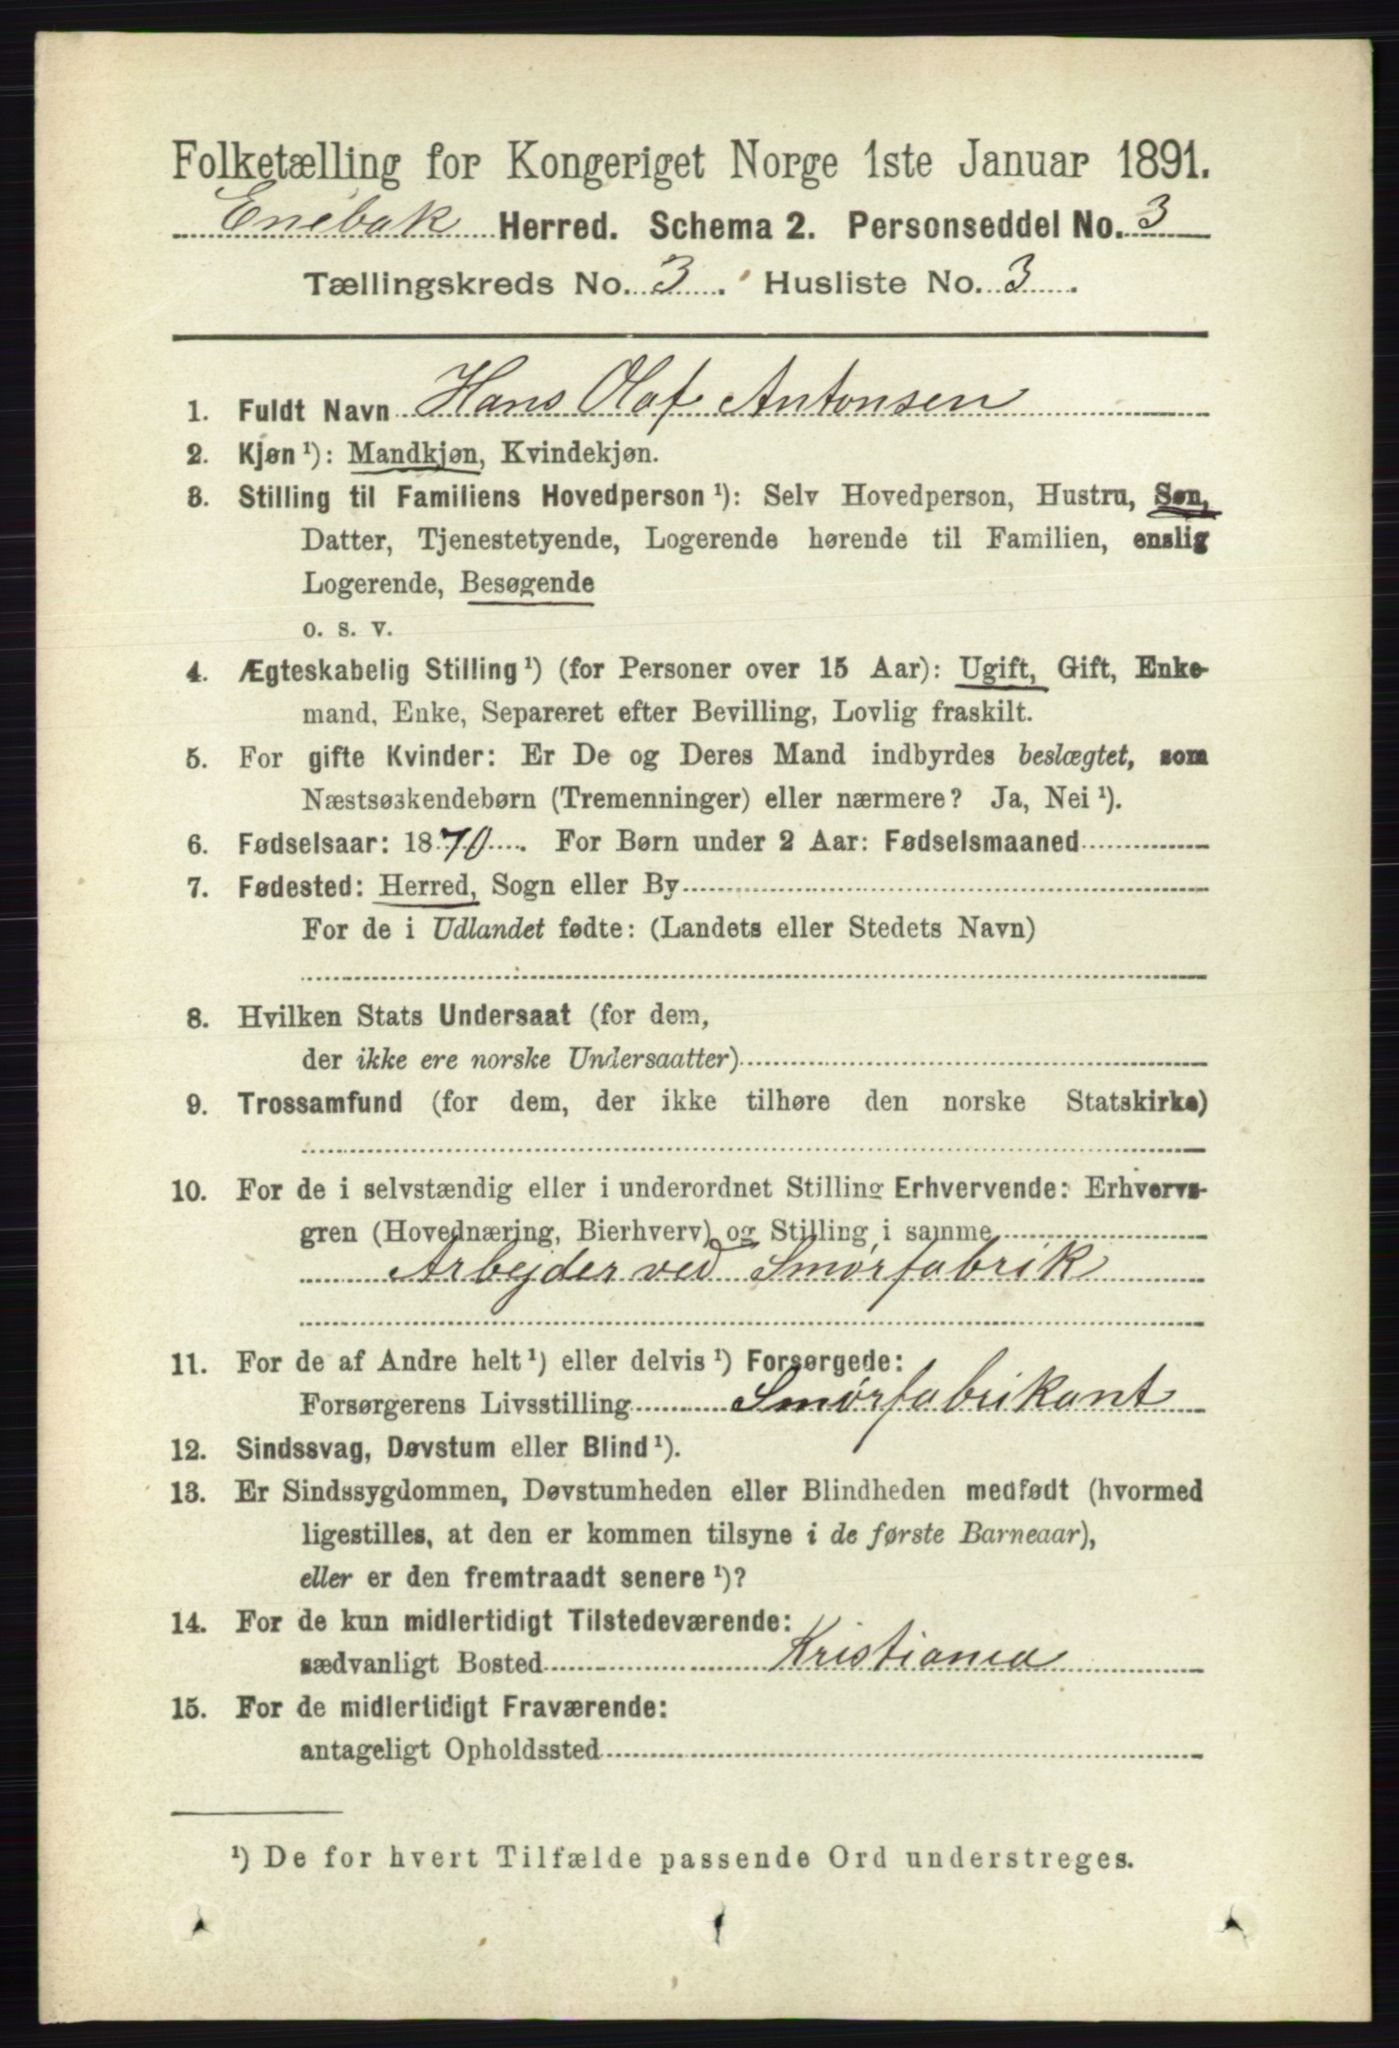 Folketælling for Kongeriget Norge 1ste Januar 1891.
Enebak Herred. Schema 2. Personseddel No. 3
Tællingskreds No. 3. Husliste No. 3.
1. Fuldt Navn Hans Olaf Antonsen
2. Kjøn ¹): Mandkjøn, Kvindekjøn.
3. Stilling til Familiens Hovedperson ¹): Selv Hovedperson, Hustru, Søn,
Datter, Tjenestetyende, Logerende hørende til Familien, enslig
Logerende, Besøgende
o. s. v.
4. Ægteskabelig Stilling ¹) (for Personer over 15 Aar): Ugift, Gift, Enke-
mand, Enke, Separeret efter Bevilling, Lovlig fraskilt.
5. For gifte Kvinder: Er De og Deres Mand indbyrdes beslægtet, som
Næstsøskendebørn (Tremenninger) eller nærmere? Ja, Nei ¹).
6. Fødselsaar: 1870. For Børn under 2 Aar: Fødselsmaaned
7. Fødested: Herred, Sogn eller By
For de i Udlandet fødte: (Landets eller Stedets Navn)
8. Hvilken Stats Undersaat (for dem,
der ikke ere norske Undersaatter)
9. Trossamfund (for dem, der ikke tilhøre den norske Statskirke)
10. For de i selvstændig eller i underordnet Stilling Erhvervende: Erhvervs-
gren (Hovednæring, Bierhverv) og Stilling i samme
Arbejder ved Smørfabrik
11. For de af Andre helt ¹) eller delvis ¹) Forsørgede:
Forsørgerens Livsstilling Smørfabrikant
12. Sindssvag, Døvstum eller Blind ¹).
13. Er Sindssygdommen, Døvstumheden eller Blindheden medfødt (hvormed
ligestilles, at den er kommen tilsyne i de første Barneaar),
eller er den fremtraadt senere ¹)?
14. For de kun midlertidigt Tilstedeværende:
sædvanligt Bosted Kristiania
15. For de midlertidigt Fraværende:
antageligt Opholdssted
¹) De for hvert Tilfælde passende Ord understreges.